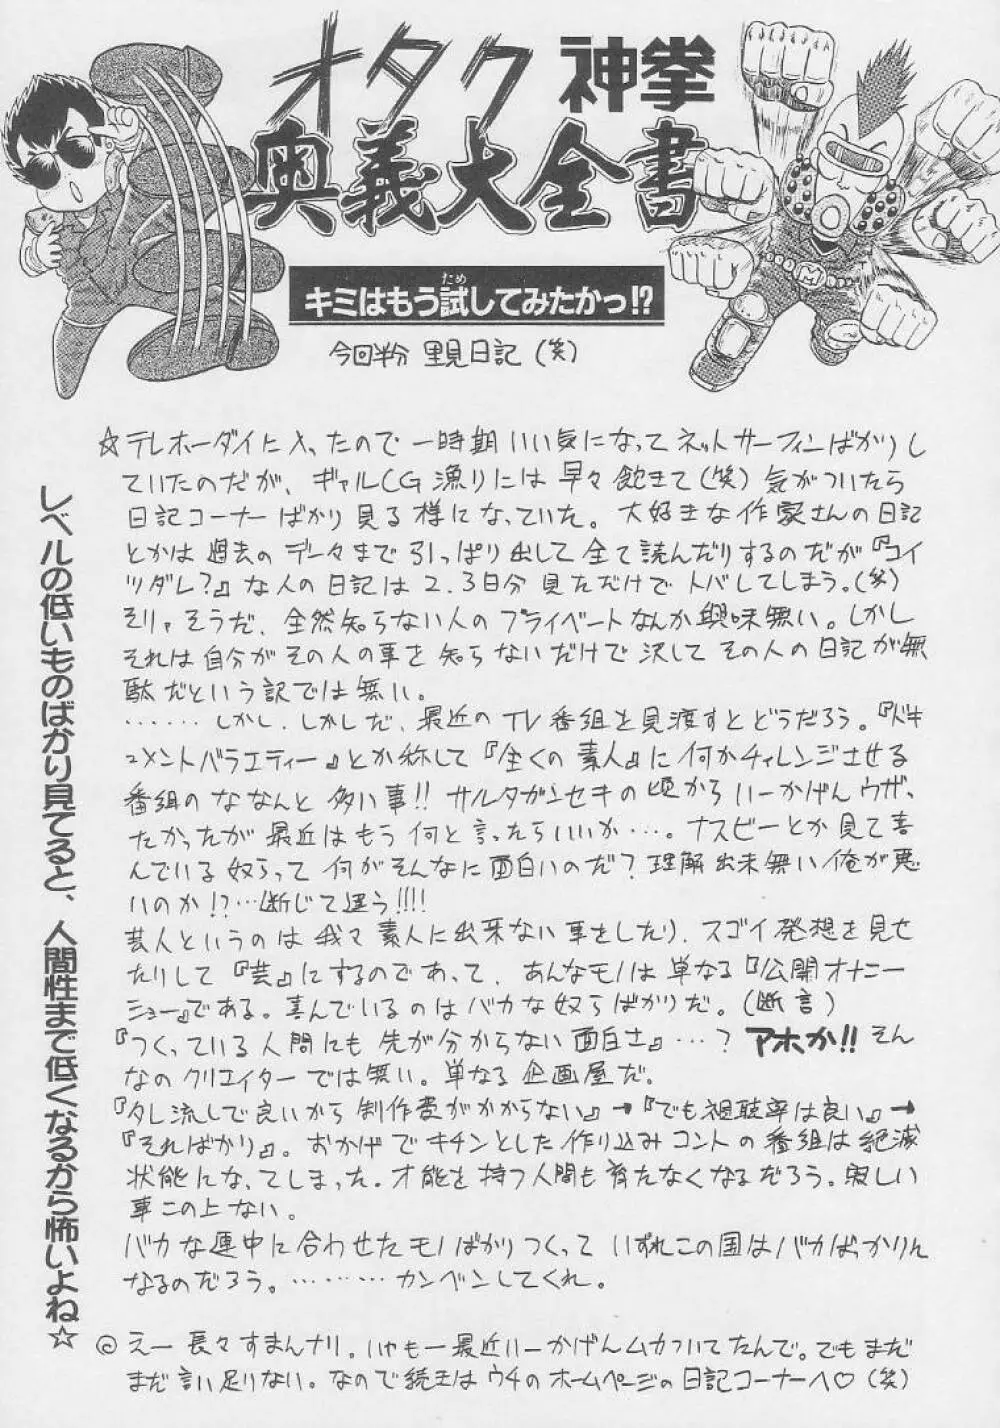 オタク神拳
奥義大全書
キミはもう試してみたかっ!?
ため
今回半分 里見日記(笑)
☆テレホーダイに入ったので 一時期いい気になってネットサーフィンばかりし
ていたのだが、ギャルCG漁りには 早々飽きて(笑)気がついたら
日記コーナーばかり見る様になっていた。大好きな作家さんの日記
とかは過去のデータまで引っぱり出して全て読んだりするのだが『コイ
ツダレ?』な人の日記は2.3日分見ただけでトバしてしまう。(笑)
そりゃそうだ、全然知らない人のプライベートなんか興味無い。しかし
それは自分がその人の事を知らないだけで決してその人の日記が無
駄だという訳では無い。
……しかし、しかしだ、最近のTV番組を見渡すとどうだろう。『ドキ
ュメントバラエティー』とか称して『全くの素人』に何かチャレンジさせる
番組のななんと多い事!!サルガンセキの頃からいーかげんウザ
たかったが最近はもう何と言ったらいいか…。ナスビーとか見て喜
んでいる奴らって何がそんなに面白いのだ?理解出来無い俺が悪
いのか!?…断じて違う!!!!
芸人というのは我々素人に出来ない事をしたり、スゴイ発想を見せ
たりして『芸』にするのであって、あんなモノは単なる『公開オナニー
ショー』である。喜んでいるのはバカな奴らばかりだ。(断言)
『つくっている人間にも先が分からない面白さ』…?アホか!!そん
なのクリエイターでは無い。単なる企画屋だ。
『タレ流しで良いから制作費がかからない』→『でも視聴率は良い』→
『そればかり』。おかげでキチンとした作り込みコントの番組は絶滅
状態になってしまった。才能を持つ人間も育たなくなるだろう。寂しい
事この上ない。
バカな連中に合わせたモノばかりつくっていずれこの国はバカばっかりん
なるのだろう。………カンベンしてくれ。
◎えー長々すまんナリ。いやもー最近いーかげんムカついてたんで。でもまだ
まだ言い足りない。なので続きはウチのホームページの日記コーナーへ♡(笑)
レベルの低いものばかり見てると、人間性まで低くなるから怖いよね☆
M